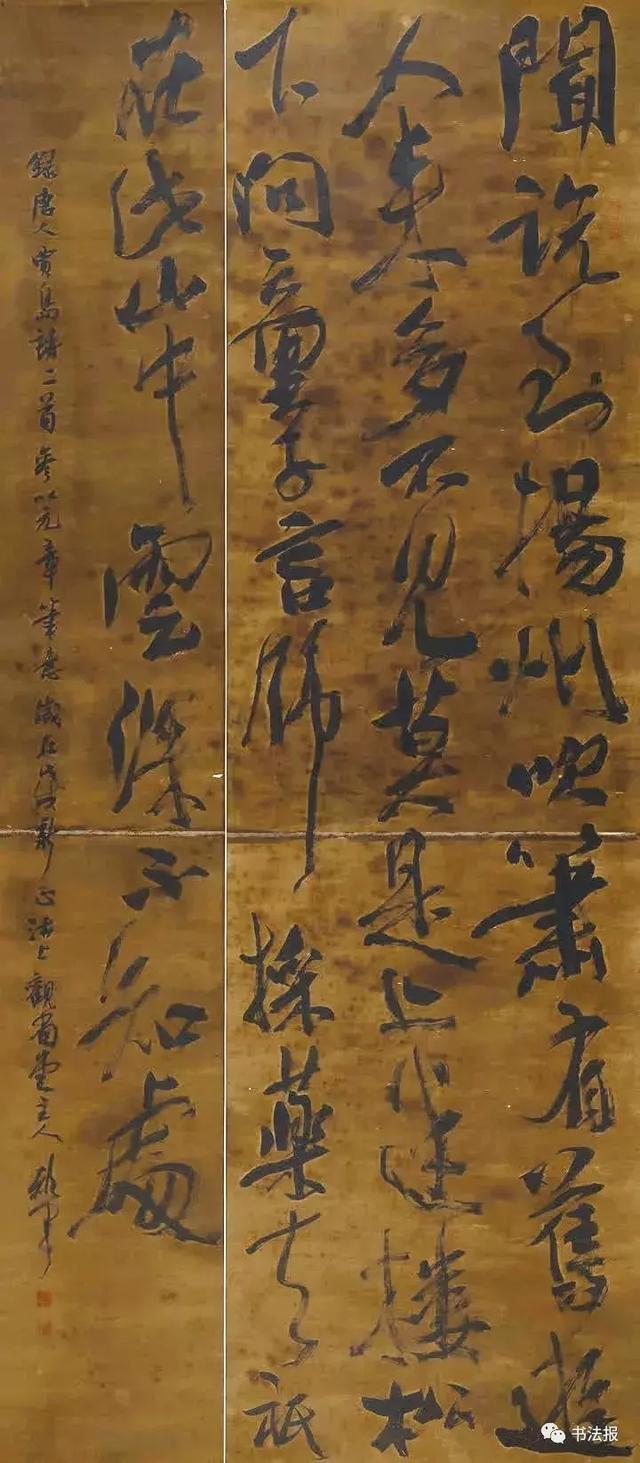 聞說到揚州吹簫有舊遊
人來多不見莫是上迷樓松
下問童子言師採藥去祇
在此山中雲深不知處
錄唐人賈島詩二首參以元章筆意歲在戊戌新正沽上觀堂主人
书法报